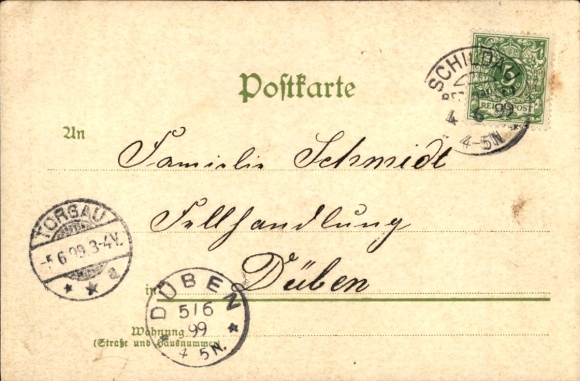 SCHILDAU
4 6 99
4-5N.
5
REICHSPOST
Postkarte
An
Familie Schmidt
Fellhandlung
in Düben
TORGAU
-5.6.99.3-4V.
* * a
DÜBEN
5/6
99
4 5N.
Wohnung
(Straße und Hausnummer)